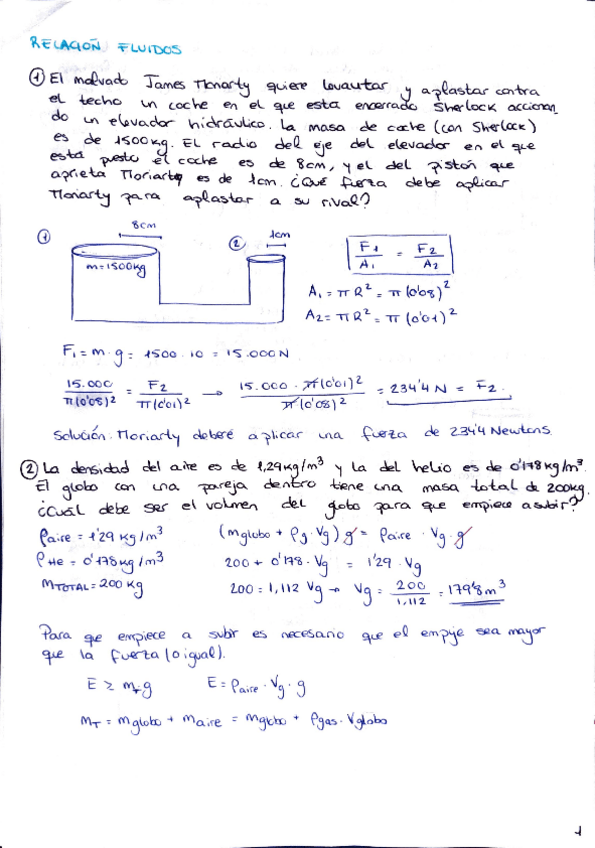 RELACIÓN FLUIDOS
① El malvado James Moriarty quiere levantar y aplastar contra
el techo un coche en el que esta encerrado Sherlock accionan
do un elevador hidráulico. La masa de coche (con Sherlock)
es de 1500kg. El radio del eje del elevador en el que
esta puesto el coche es de 8cm, y el del pistón que
aprieta Moriarty es de 1cm. ¿Qué fuerza debe aplicar
Moriarty para aplastar a su rival?
① 8cm ② 1cm
m=1500kg
F1/A1 = F2/A2
A1 = π R² = π (0'08)²
A2 = π R² = π (0'01)²
F1 = m·g = 1500·10 = 15.000N
15.000/π(0'08)² = F2/π(0'01)² → 15.000·π(0'01)²/π(0'08)² = 234'4 N = F2.
Solución. Moriarty deberé aplicar una fuerza de 234'4 Newtons.
② La densidad del aire es de 1,29kg/m³ y la del helio es de 0'178kg/m³.
El globo con una pareja dentro tiene una masa total de 200kg.
¿Cuál debe ser el volumen del globo para que empiece a subir?
ρaire = 1'29 kg/m³ (mglobo + ρg·Vg) g = ρaire · Vg·g
ρHe = 0'178 kg/m³ 200 + 0'178·Vg = 1'29·Vg
MTOTAL = 200 kg 200 = 1,112 Vg → Vg = 200/1,112 = 179'8m³
Para que empiece a subir es necesario que el empuje sea mayor
que la fuerza (o igual).
E ≥ mT·g E = ρaire·Vg·g
MT = mglobo + maire = mglobo + ρgas·Vglobo
1